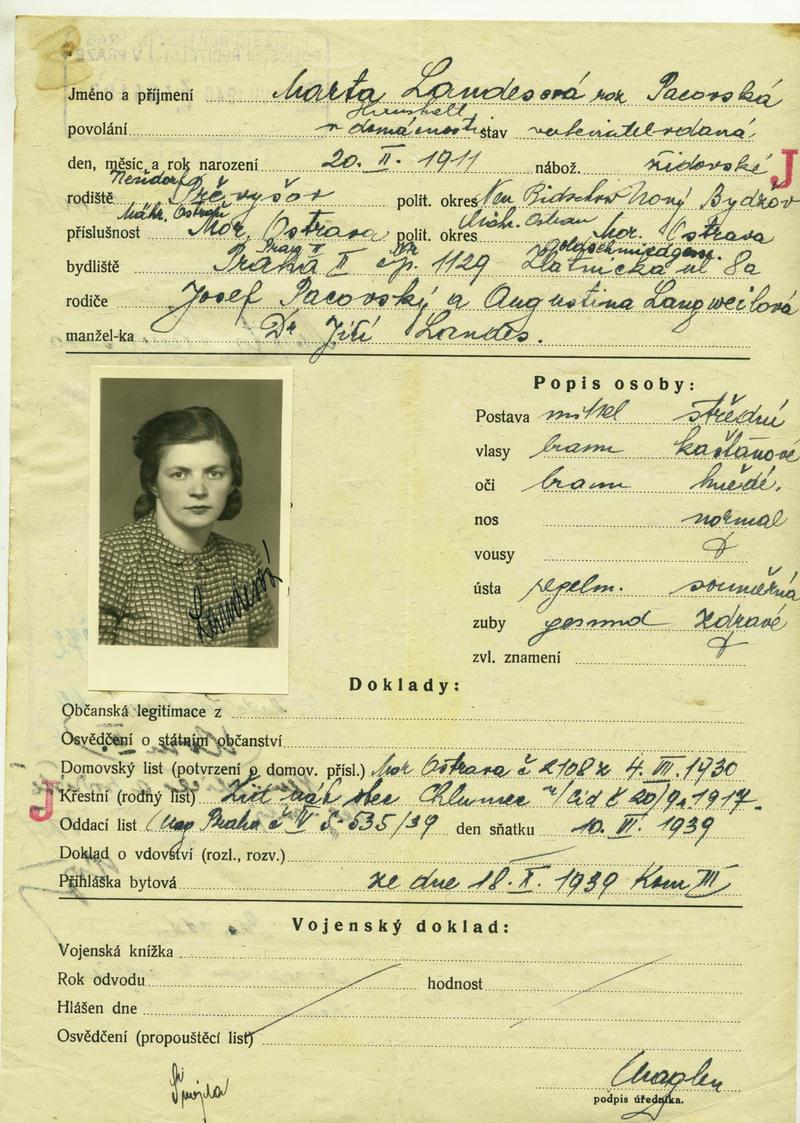 Jméno a příjmení Marta Landesová roz Pacovská
povolání v domácnosti stav verheiratet vdaná
den, měsíc a rok narození 20. II. 1911 nábož. židovské J
Neudorf
rodiště polit. okres Neu Bidschow Nový Bydžov
Mähr. Ostrau Mähr. Ostrau
příslušnost Mor. Ostrava polit. okres Mor. Ostrava
Prag II Nr Goldschmiedgasse.
bydliště Praha II čp. 1129 Zlatnická ul 8a
rodiče Josef Pacovský a Augustina Langweilová
manžel-ka Dr Jiří Landes.
Popis osoby:
Postava mittel střední
vlasy braun kaštanové
oči braun hnědé.
nos normal
vousy
ústa regelm. souměrná
zuby gesund zdravé
zvl. znamení
Landesová
Doklady:
Občanská legitimace z
Osvědčení o státním občanství
Domovský list (potvrzení o domov. přísl.) Mor Ostrava č 2108 z 4. III. 1930
J Křestní (rodný list) Žid náb obec Chlumec n/Cid č 20/ 1917.
Oddací list Mag Praha č V č- 535/39 den sňatku 10. VI. 1939
Doklad o vdovství (rozl., rozv.)
Přihláška bytová ze dne 18. X. 1939 Kom III
Vojenský doklad:
Vojenská knížka
Rok odvodu hodnost
Hlášen dne
Osvědčení (propouštěcí list)
podpis úředníka.